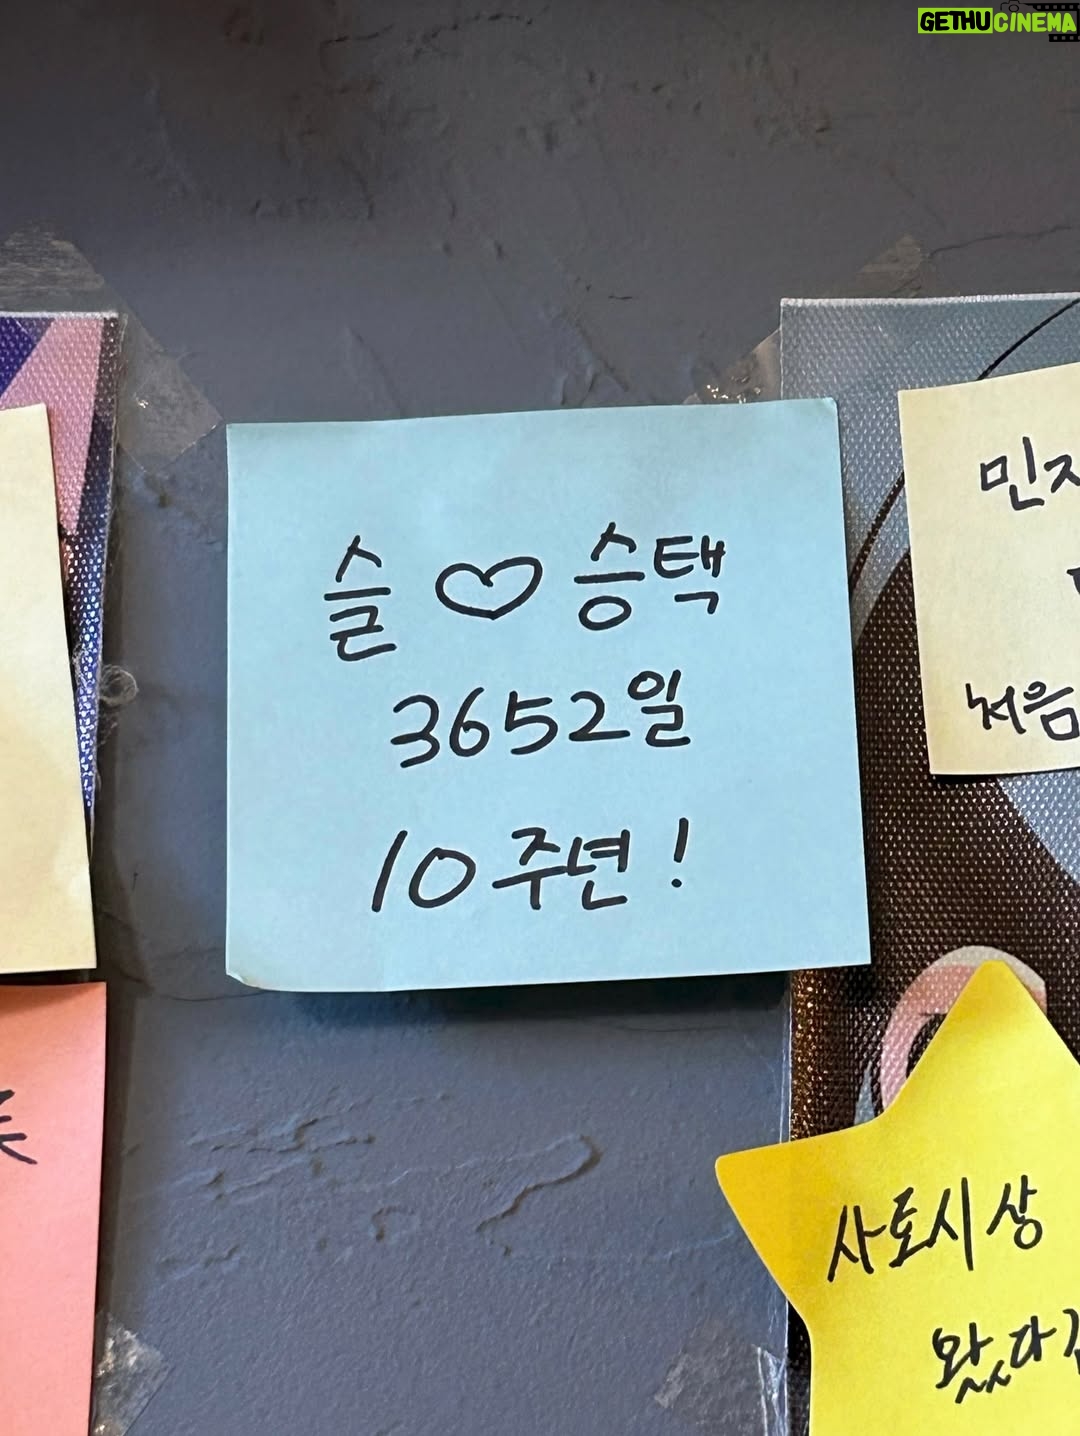 GETHUCINEMA
슬 ♡ 승택
3652일
10주년!
민지
처음
사토시상
왔다감